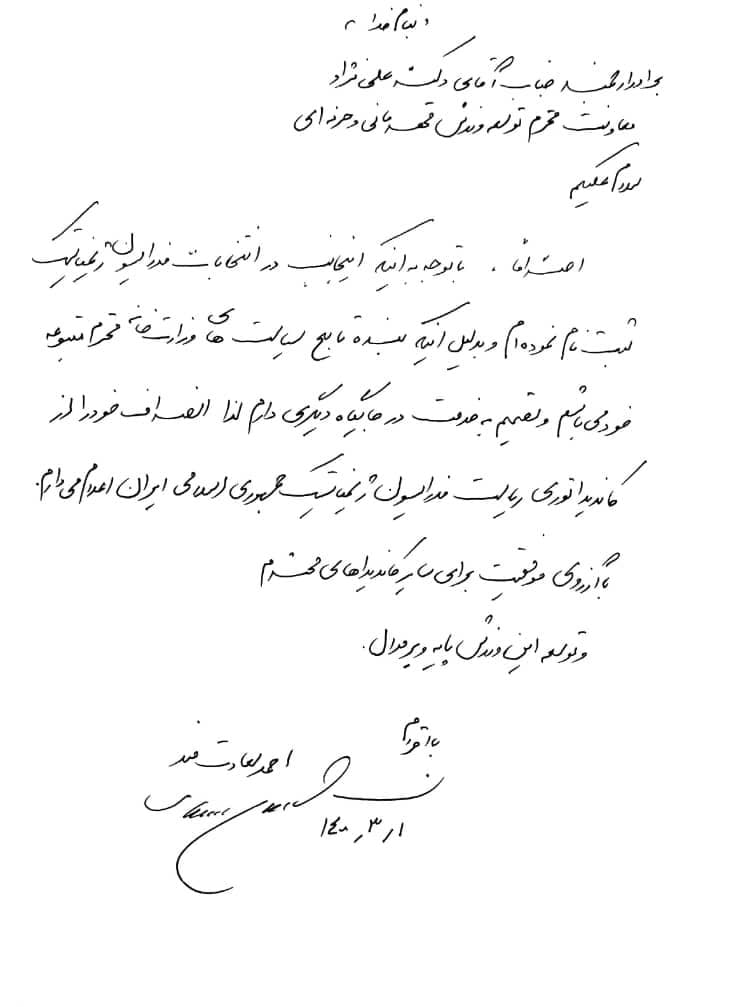 « بنام خدا »
برادر ارجمند جناب آقای دکتر علی نژاد
معاونت محترم توسعه ورزش قهرمانی و حرفه ای
سلام علیکم
احتراماً ، با توجه به اینکه اینجانب در انتخابات فدراسیون ژیمناستیک
ثبت نام نموده ام و بدلیل آنکه بنده تابع سیاست های وزارتخانه محترم متبوعه
خود می باشم و تصمیم به خدمت در جایگاه دیگری دارم لذا انصراف خود را از
کاندیداتوری ریاست فدراسیون ژیمناستیک جمهوری اسلامی ایران اعلام می دارم.
با آرزوی موفقیت برای سایر کاندیداهای محترم
و توسعه این ورزش پایه و پر مدال.
با احترام
احمد سعادت مند
۱۴۰۰٫۳٫۱